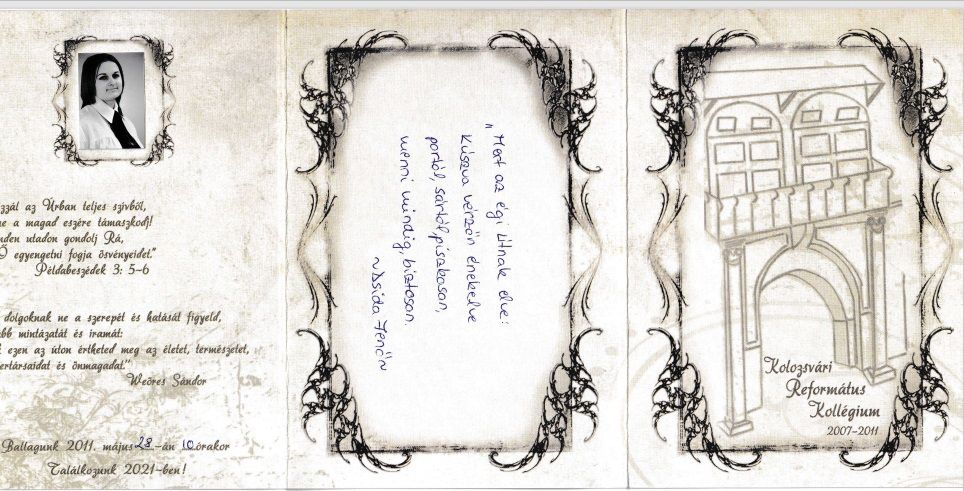 zzál az Úrban teljes szívből,
ne a magad eszére támaszkodj!
nden utadon gondolj Rá,
Ő egyengeti fogja ösvényeidet."
Példabeszédek 3: 5-6
dolgoknak ne a szerepét és hatását figyeld,
bb mintázatát és iramát:
k ezen az úton értheted meg az életet, természetet,
ertársaidat és önmagadat.
Weöres Sándor
Ballagunk 2011. május 28-án 10 órakor
Találkozunk 2021-ben!
„Mert az égi útnak elve:
kúszva vérzőn énekelve
portól, sártól piszkosan,
menni mindig, biztosan.
~Dsida Jenő~
Kolozsvári
Református
Kollégium
2007-2011